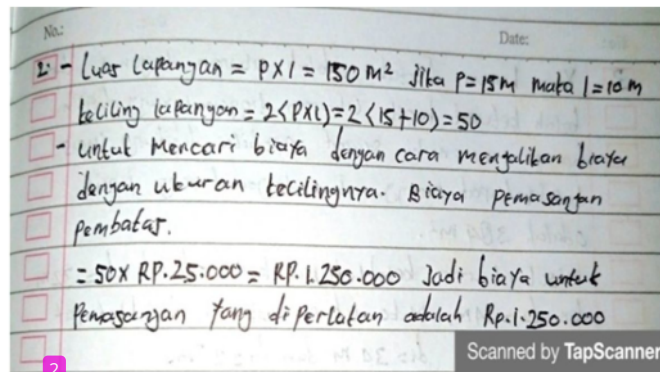 No.:
Date:
2. - Luas Lapangan = P x l = 150 m² Jika P = 15 m maka l = 10 m
keliling lapangan = 2 < P x l > = 2 < 15 + 10 > = 50
- untuk Mencari biaya dengan cara mengalikan biaya
dengan ukuran kelilingnya. Biaya pemasangan
pembatas.
= 50 x RP. 25.000 = RP. 1.250.000 Jadi biaya untuk
Pemasangan yang diperlukan adalah Rp. 1.250.000
2
Scanned by TapScanner